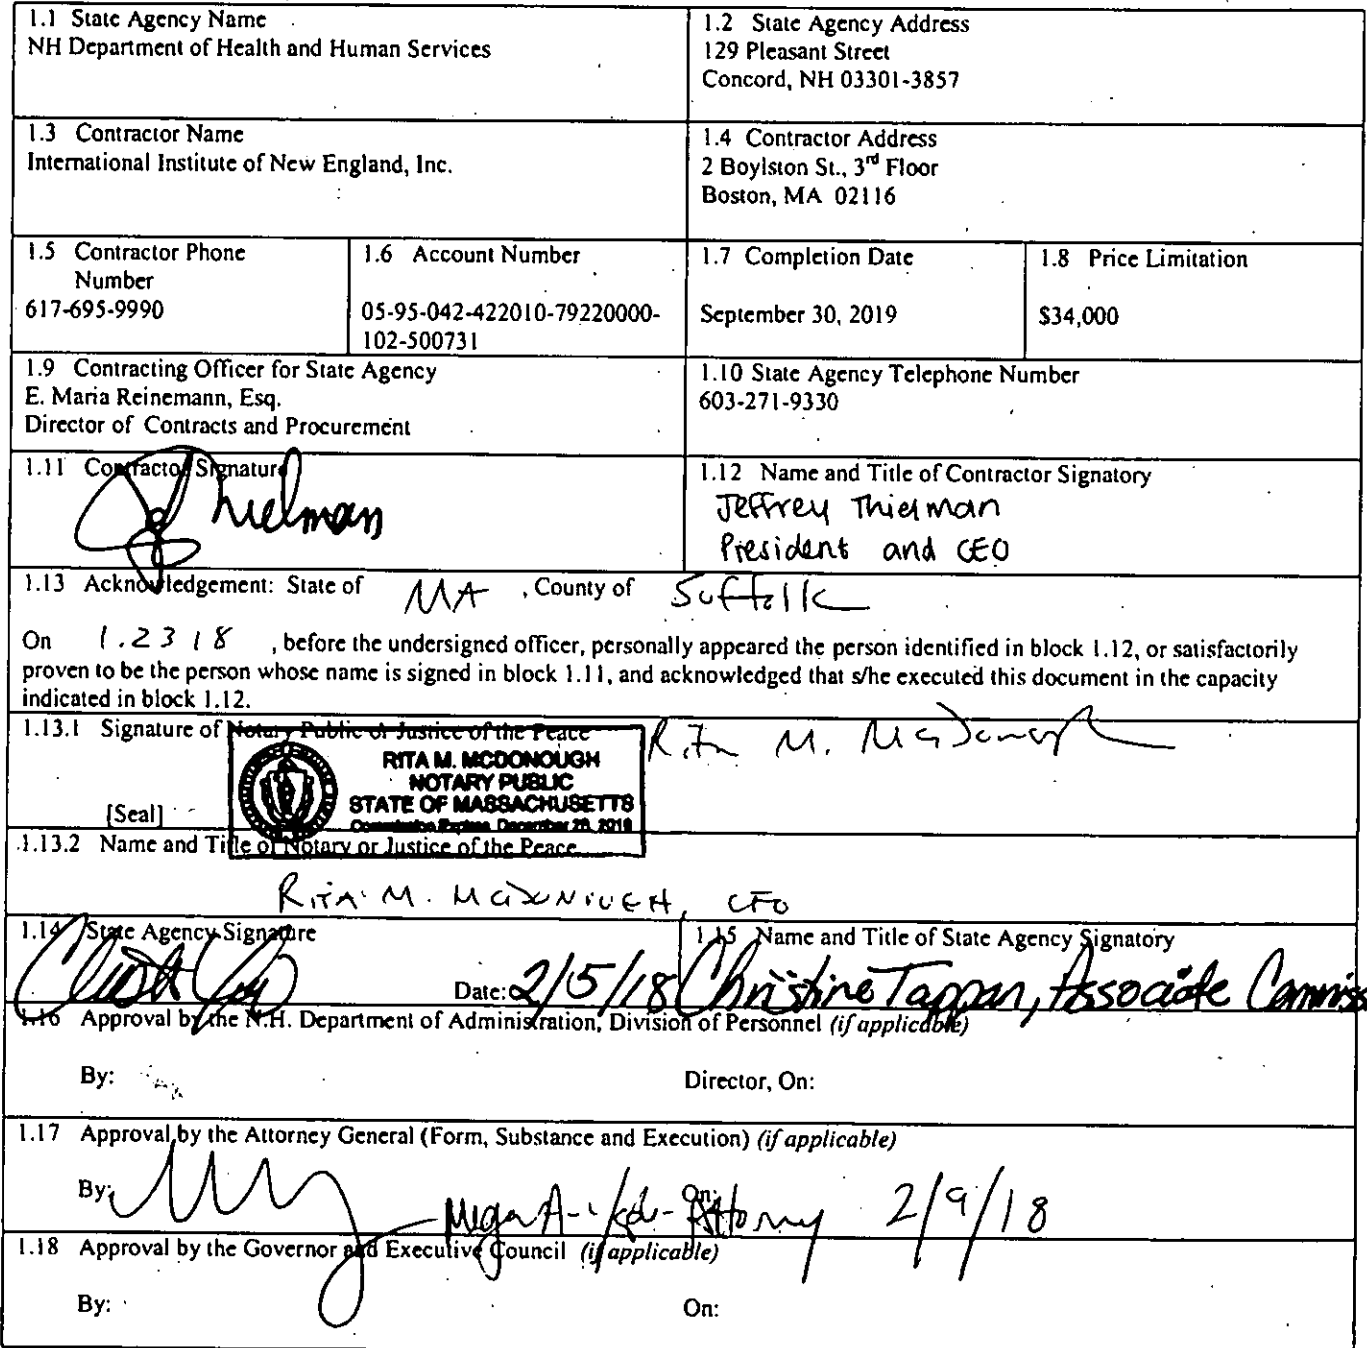 1.1 State Agency Name
NH Department of Health and Human Services
1.2 State Agency Address
129 Pleasant Street
Concord, NH 03301-3857
1.3 Contractor Name
International Institute of New England, Inc.
1.4 Contractor Address
2 Boylston St., 3rd Floor
Boston, MA 02116
1.5 Contractor Phone
Number
617-695-9990
1.6 Account Number
05-95-042-422010-79220000-
102-500731
1.7 Completion Date
September 30, 2019
1.8 Price Limitation
$34,000
1.9 Contracting Officer for State Agency
E. Maria Reinemann, Esq.
Director of Contracts and Procurement
1.10 State Agency Telephone Number
603-271-9330
1.11 Contractor Signature
Thielman
1.12 Name and Title of Contractor Signatory
Jeffrey Thielman
President and CEO
1.13 Acknowledgement: State of MA , County of Suffolk
On 1.23 18 , before the undersigned officer, personally appeared the person identified in block 1.12, or satisfactorily
proven to be the person whose name is signed in block 1.11, and acknowledged that s/he executed this document in the capacity
indicated in block 1.12.
1.13.1 Signature of Notary Public or Justice of the Peace
Rita M. McDonough
RITA M. MCDONOUGH
NOTARY PUBLIC
STATE OF MASSACHUSETTS
Commission Expires December 28, 2018
[Seal]
1.13.2 Name and Title of Notary or Justice of the Peace
RITA M. McDONOUGH, CFO
1.14 State Agency Signature
Date: 2/5/18
1.15 Name and Title of State Agency Signatory
Christine Tappan, Associate Commiss
1.16 Approval by the N.H. Department of Administration, Division of Personnel (if applicable)
By:
Director, On:
1.17 Approval by the Attorney General (Form, Substance and Execution) (if applicable)
By: Attorney On: 2/9/18
1.18 Approval by the Governor and Executive Council (if applicable)
By:
On: